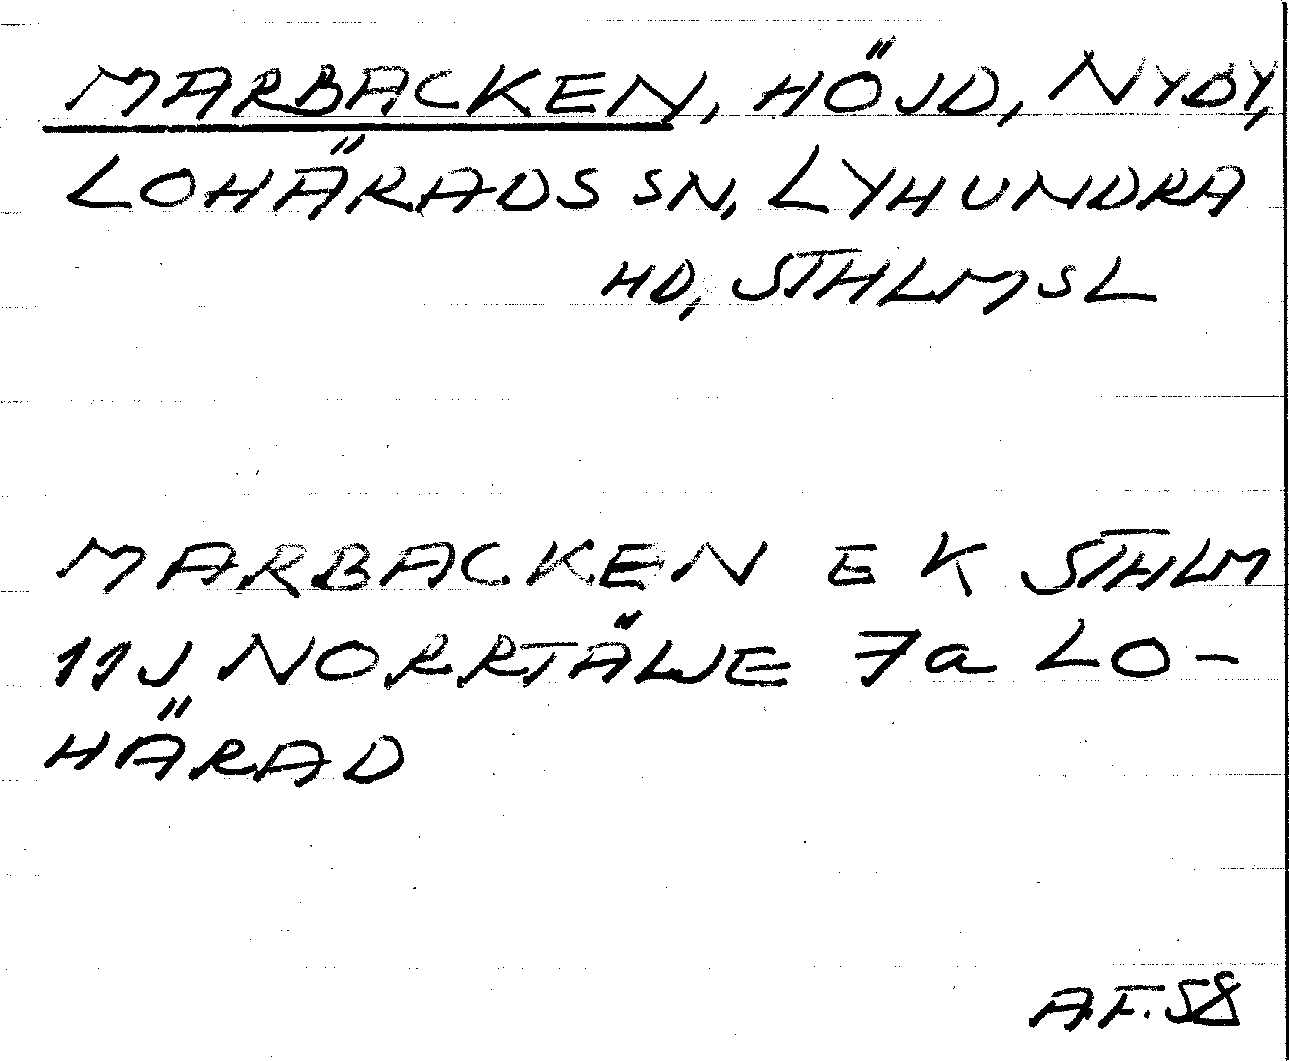 MARBACKEN, HÖJD, NYBY,
LOHÄRADS SN, LYHUNDRA
HD, STHLMSL
MARBACKEN EK STHLM
11J NORRTÄLJE 7a LO-
HÄRAD
A.F. 58